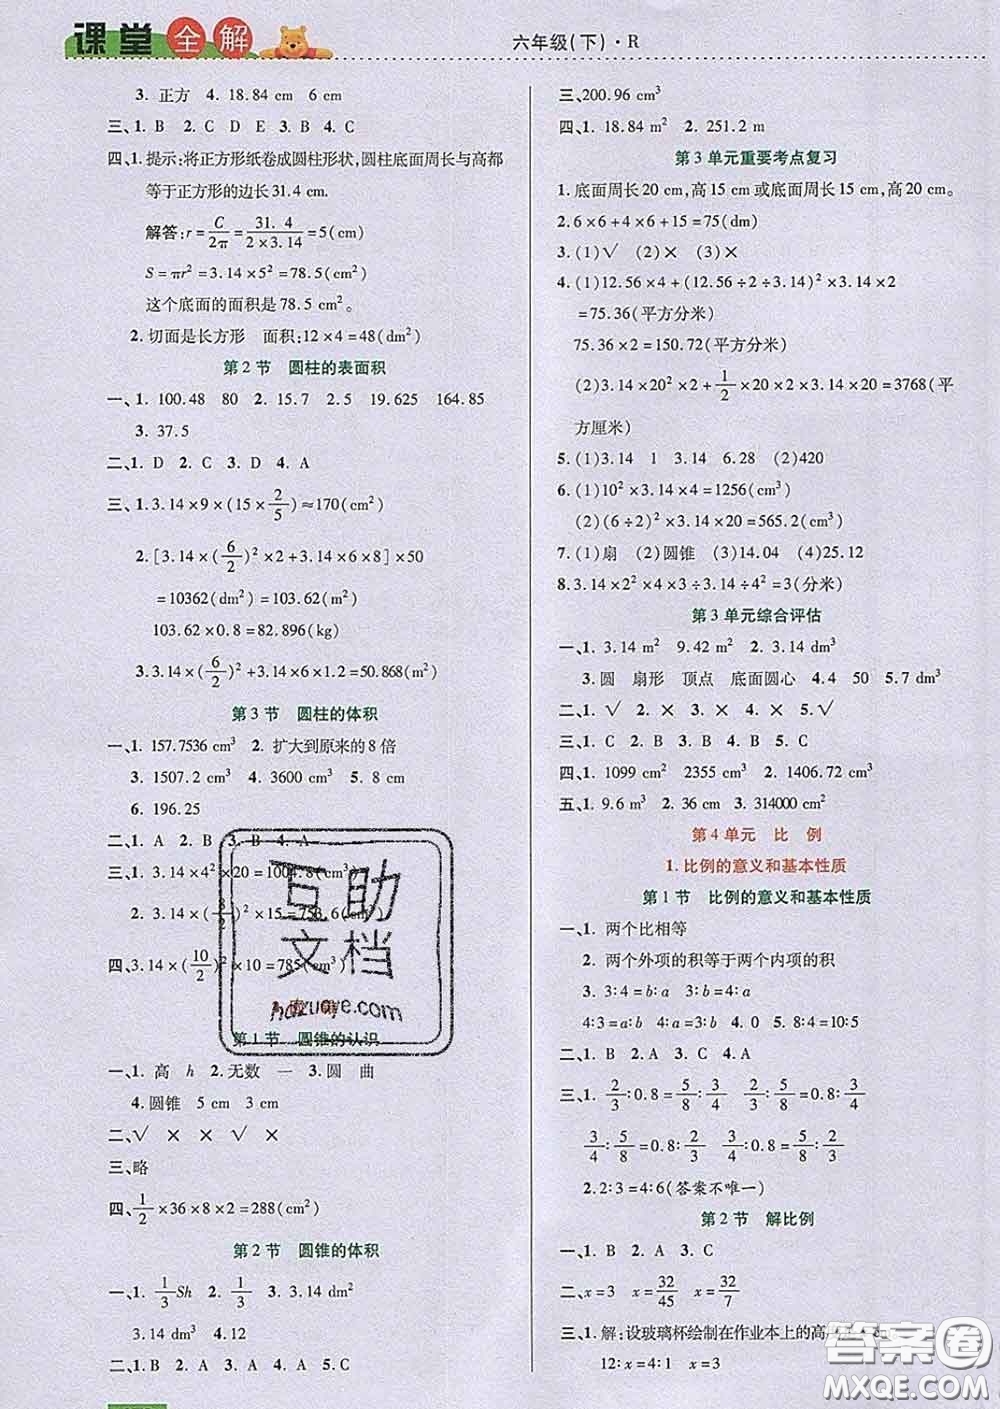 课堂全解
六年级(下)·R
3. 正方 4. 18.84 cm 6 cm
三、1. B 2. C D E 3. B 4. C
四、1. 提示:将正方形纸卷成圆柱形状,圆柱底面周长与高都
等于正方形的边长31.4 cm.
解答:r=C/2π=31.4/(2×3.14)=5(cm)
S=πr²=3.14×5²=78.5(cm²)
这个底面的面积是 78.5 cm²。
2. 切面是长方形 面积:12×4=48(dm²)
第2节 圆柱的表面积
一、1. 100.48 80 2. 15.7 2.5 19.625 164.85
3. 37.5
二、1. D 2. C 3. D 4. A
三、1. 3.14×9×(15×2/5)≈170(cm²)
2. [3.14×(6/2)²×2+3.14×6×8]×50
=10362(dm²)=103.62(m²)
103.62×0.8=82.896(kg)
3. 3.14×(6/2)²+3.14×6×1.2=50.868(m²)
第3节 圆柱的体积
一、1. 157.7536 cm³ 2. 扩大到原来的8倍
3. 1507.2 cm³ 4. 3600 cm³ 5. 8 cm
6. 196.25
二、1. A 2. B 3. B 4. A
三、1. 3.14×4²×20=1004.8(cm³)
2. 3.14×(8/2)²×15=753.6(cm³)
四、3.14×(10/2)²×10=785(cm³)
第1节 圆锥的认识
一、1. 高 h 2. 无数 一 3. 圆 曲
4. 圆锥 5 cm 3 cm
二、√ × × √ ×
三、略
四、1/2×36×8×2=288(cm²)
第2节 圆锥的体积
一、1. 1/3Sh 2. 1/3 3. 3.14 dm²
3.14 dm³ 4. 12
二、1. B 2. A 3. B 4. A 5. C
三、200.96 cm³
四、1. 18.84 m² 2. 251.2 m
第3单元重要考点复习
1. 底面周长20 cm,高15 cm 或底面周长15 cm,高20 cm。
2. 6×6+4×6+15=75(dm)
3. (1)√ (2)× (3)×
4. (1)12.56×4+(12.56÷2÷3.14)²×3.14×2
=75.36(平方分米)
75.36×2=150.72(平方分米)
(2)3.14×20²×2+1/2×20×2×3.14×20=3768(平
方厘米)
5. (1)3.14 1 3.14 6.28 (2)420
6. (1)10²×3.14×4=1256(cm³)
(2)(6÷2)²×3.14×20=565.2(cm³)
7. (1)扇 (2)圆锥 (3)14.04 (4)25.12
8. 3.14×2²×4×3÷3.14÷4²=3(分米)
第3单元综合评估
一、1. 3.14 m² 9.42 m² 2. 3.14 dm³
3. 圆 扇形 顶点 底面圆心 4. 4 50 5. 7 dm³
二、1. √ 2. × 3. × 4. × 5. √
三、1. C 2. B 3. B 4. B 5. C
四、1. 1099 cm² 2355 cm³ 2. 1406.72 cm³
五、1. 9.6 m³ 2. 36 cm 3. 314000 cm²
第4单元 比 例
1. 比例的意义和基本性质
第1节 比例的意义和基本性质
一、1. 两个比相等
2. 两个外项的积等于两个内项的积
3. 3:4=b:a 3:b=4:a
4:3=a:b 4. 0 5. 8:4=10:5
二、1. B 2. A 3. C 4. C
三、1. 2/3:0.8=5/8:3/4 2/3:5/8=0.8:3/4
3/4:5/8=0.8:2/3 3/4:0.8=5/8:2/3
2. 2:3=4:6(答案不唯一)
第2节 解比例
一、1. B 2. A 3. C
二、x=3 x=32/45 x=32/7
三、1. 解:设玻璃杯绘制在作业本上的高
12:x=4:1 x=3
互助文档
hdzuoye.com
答案圈
MXQE.COM